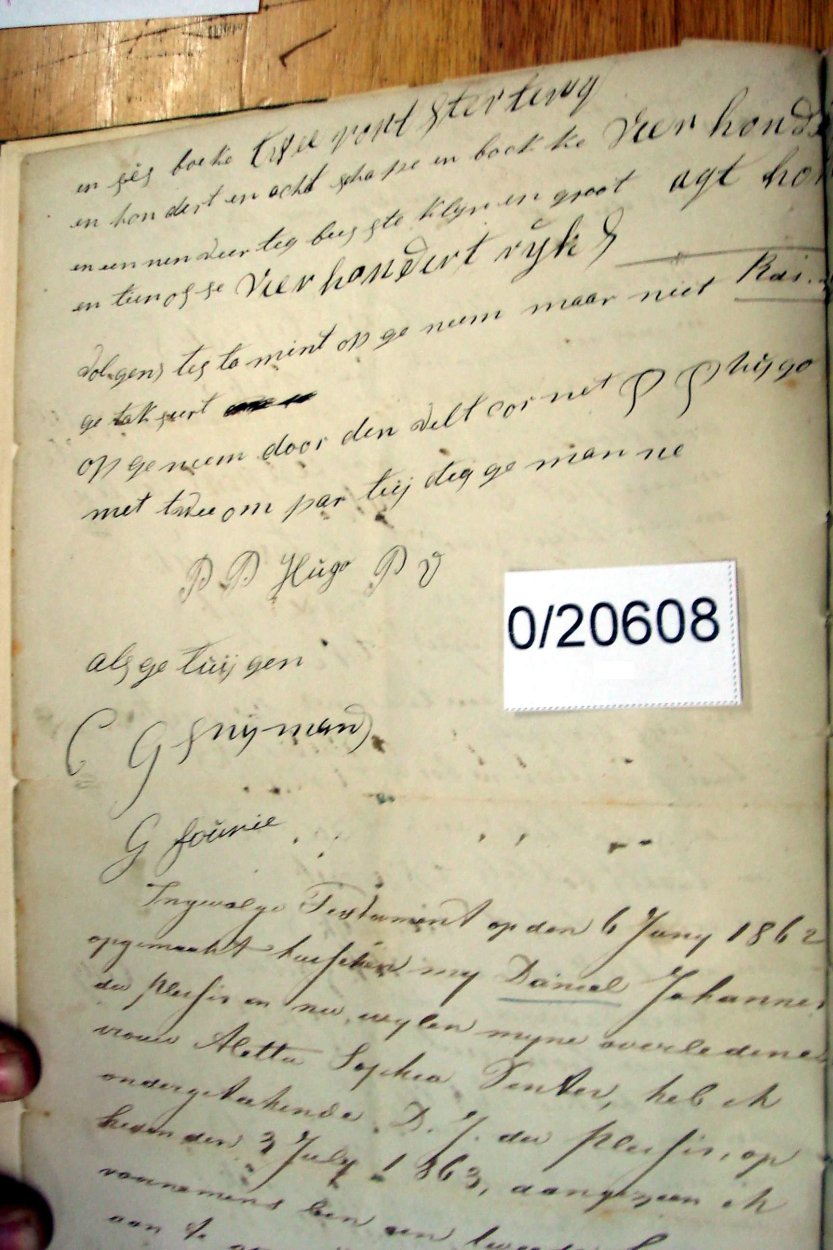 en ses bocke twee pont sterling
en hondert en acht schape en bock ke vier hond
en een nen veer teg beeste klyn en groot agt hon
en teen osse vier hondert ryk S
volgens testament op ge neem maar niet
ge takseert
op geneem door den velt cor net P P hugo
met twee om par tij dig ge man ne
P P Hugo P V
als ge tuij gen
C G Snyman
G fourie
Ingevolge Testament op den 6 Juny 1862
opgemaakt tusschen my Daniel Johannes
du Plessis en nu wylen myne overledene
vrouw Aletta Sophia Venter, heb ik
ondergetekende D. J. du Plessis, op
heden den 3 July 1863, aangezien ik
voornemens ben een tweede
aan te
0/20608